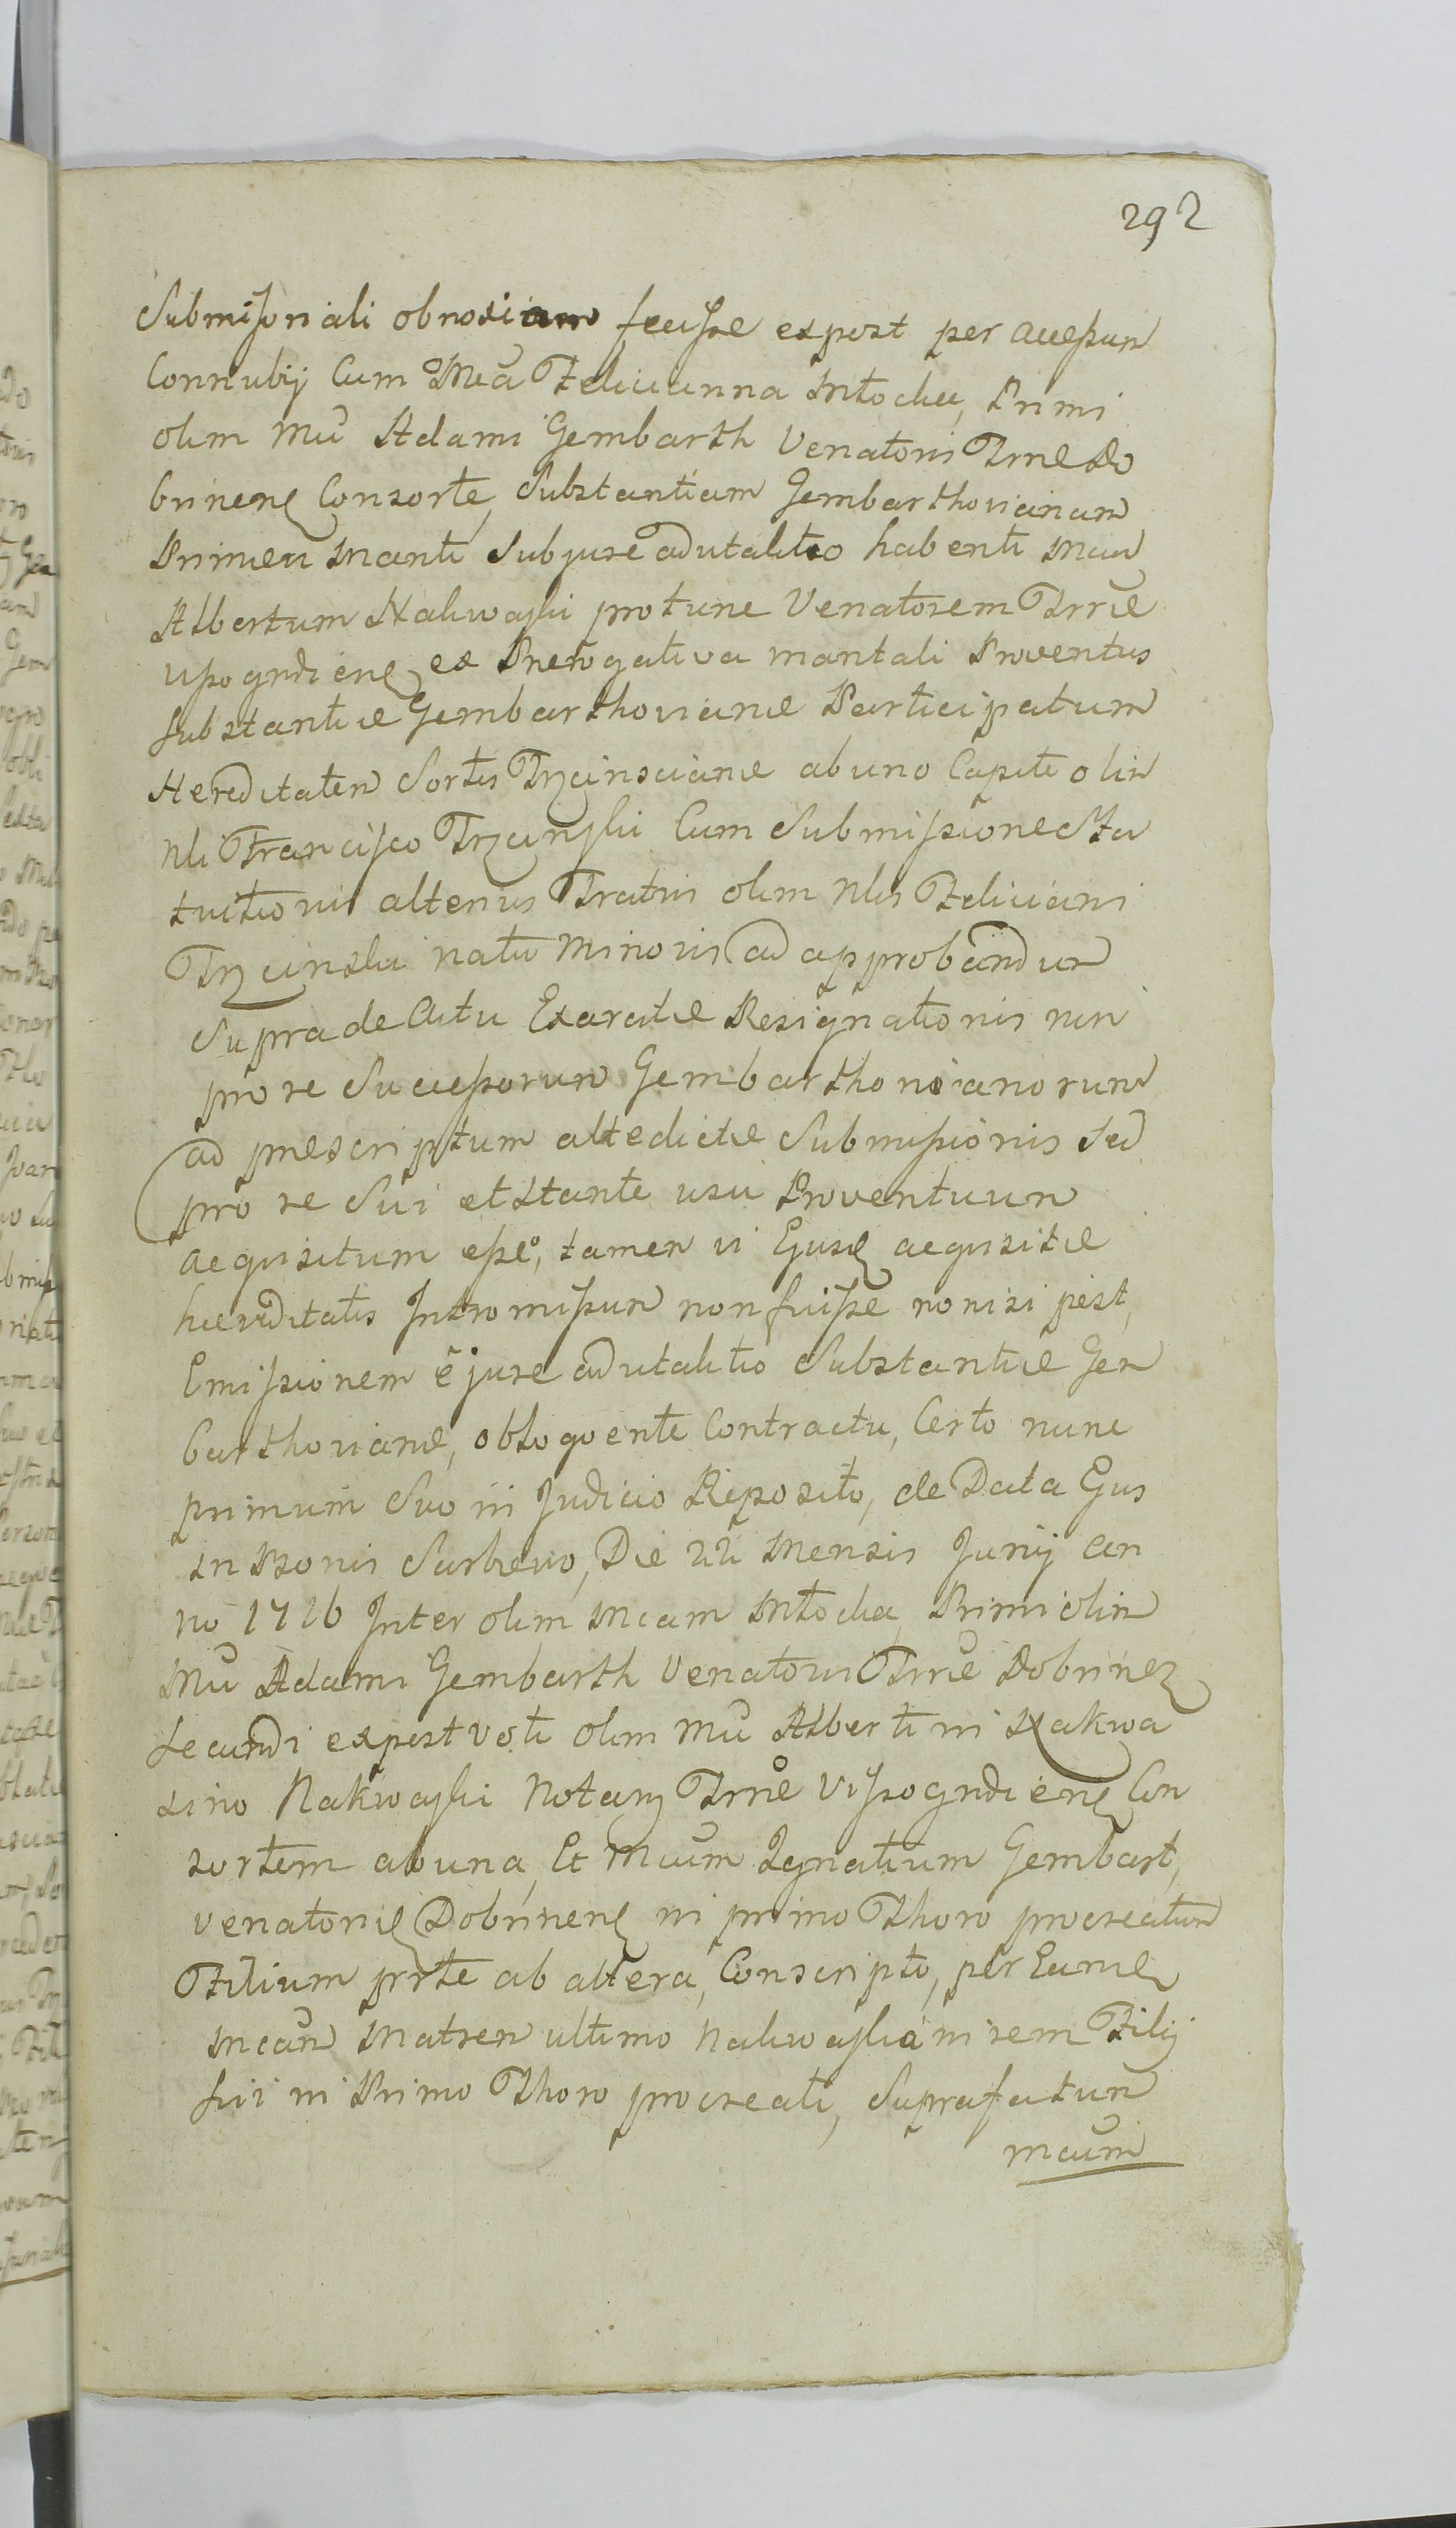 292
Submissionali obnoxiam fecisse expost per accessum
Connubij Cum Mca Felicianna Młocka, Primi
olim Mci Adami Gembarth Venatoris Trrae Do
brinens Consorte, Substantiam Gembarthovianam
Primevi Mariti Sub jure advitalitio habenti Mcum
Albertum Nakwaski pro tunc Venatorem Trrae
Vyssogrdiens, ex Prerogativa maritali Proventus
Substantiae Gembarthovianae Participatum
Hereditatem Sortis Trzcinscianae ab uno Capite olim
Nli Francisco Trzcinski Cum Submissione Sta
tuitionis alterius Fratris olim Nlis Feliciani
Trzcinski natu Minoris ad approbandum
Supra de Actu Exaratae Resignationis non
pro re Successorum Gembarthovianorum
ad prescriptum altedictae Submissionis Sed
pro re Sui et Stante usu Proventuum
acquisitum esse, tamen vi Ejusd acquisitae
haereditatis Intromissum non fuisse nonisi post,
Emissionem e jure advitalitio Substantiae Gem
barthovianae, obloquente Contractu, Certo nunc
primum Suo in Judicio Reposito, de Data Ejus
in Bonis Sarbiewo, Die 22 Mensis Junij An
no 1716 Inter olim Mcam Młocka, Primi olim
Mci Adami Gembarth Venatoris Trrae Dobrinen
Secundi expost voti olim Mci Alberti in Nakwa
sino Nakwaski Notarij Trrae Vissogrdiens Con
sortem ab una, Et Mcum Ignatium Gembart,
venatoris Dobrinens in primo Thoro procreatum
Filium prte ab altera, Conscripto, per Eamd
Mcam Matrem ultimo Nakwaska in rem Filij
Sui in Primo Thoro procreati, Suprafatum
Mcum